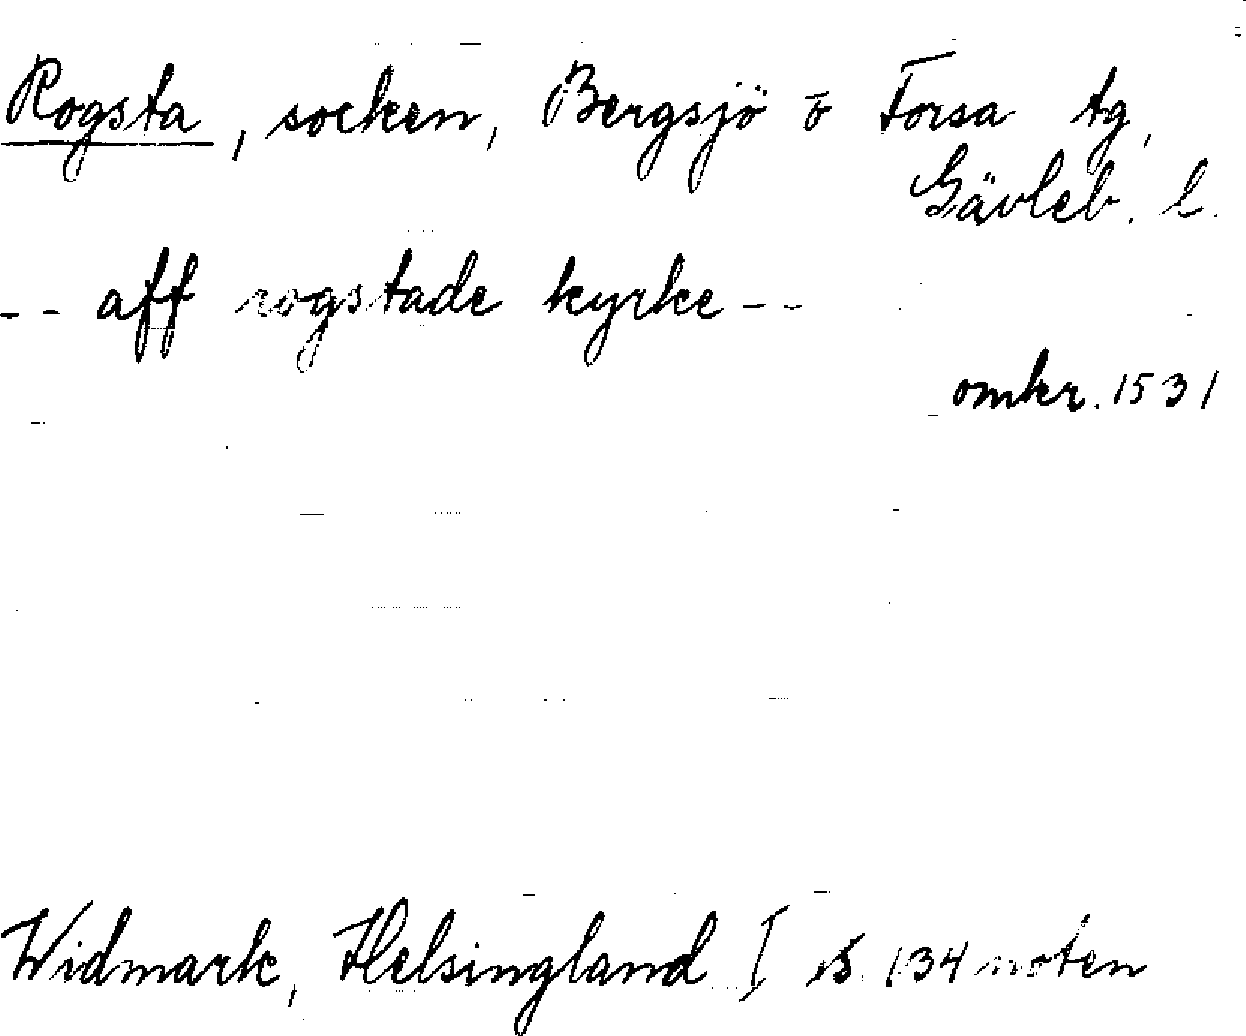 Rogsta, socken, Bergsjö o Forsa tg,
Gävleb. l.
-- aff rogstade kyrke --
omkr. 1531
Widmark, Helsingland I s. 134 noten